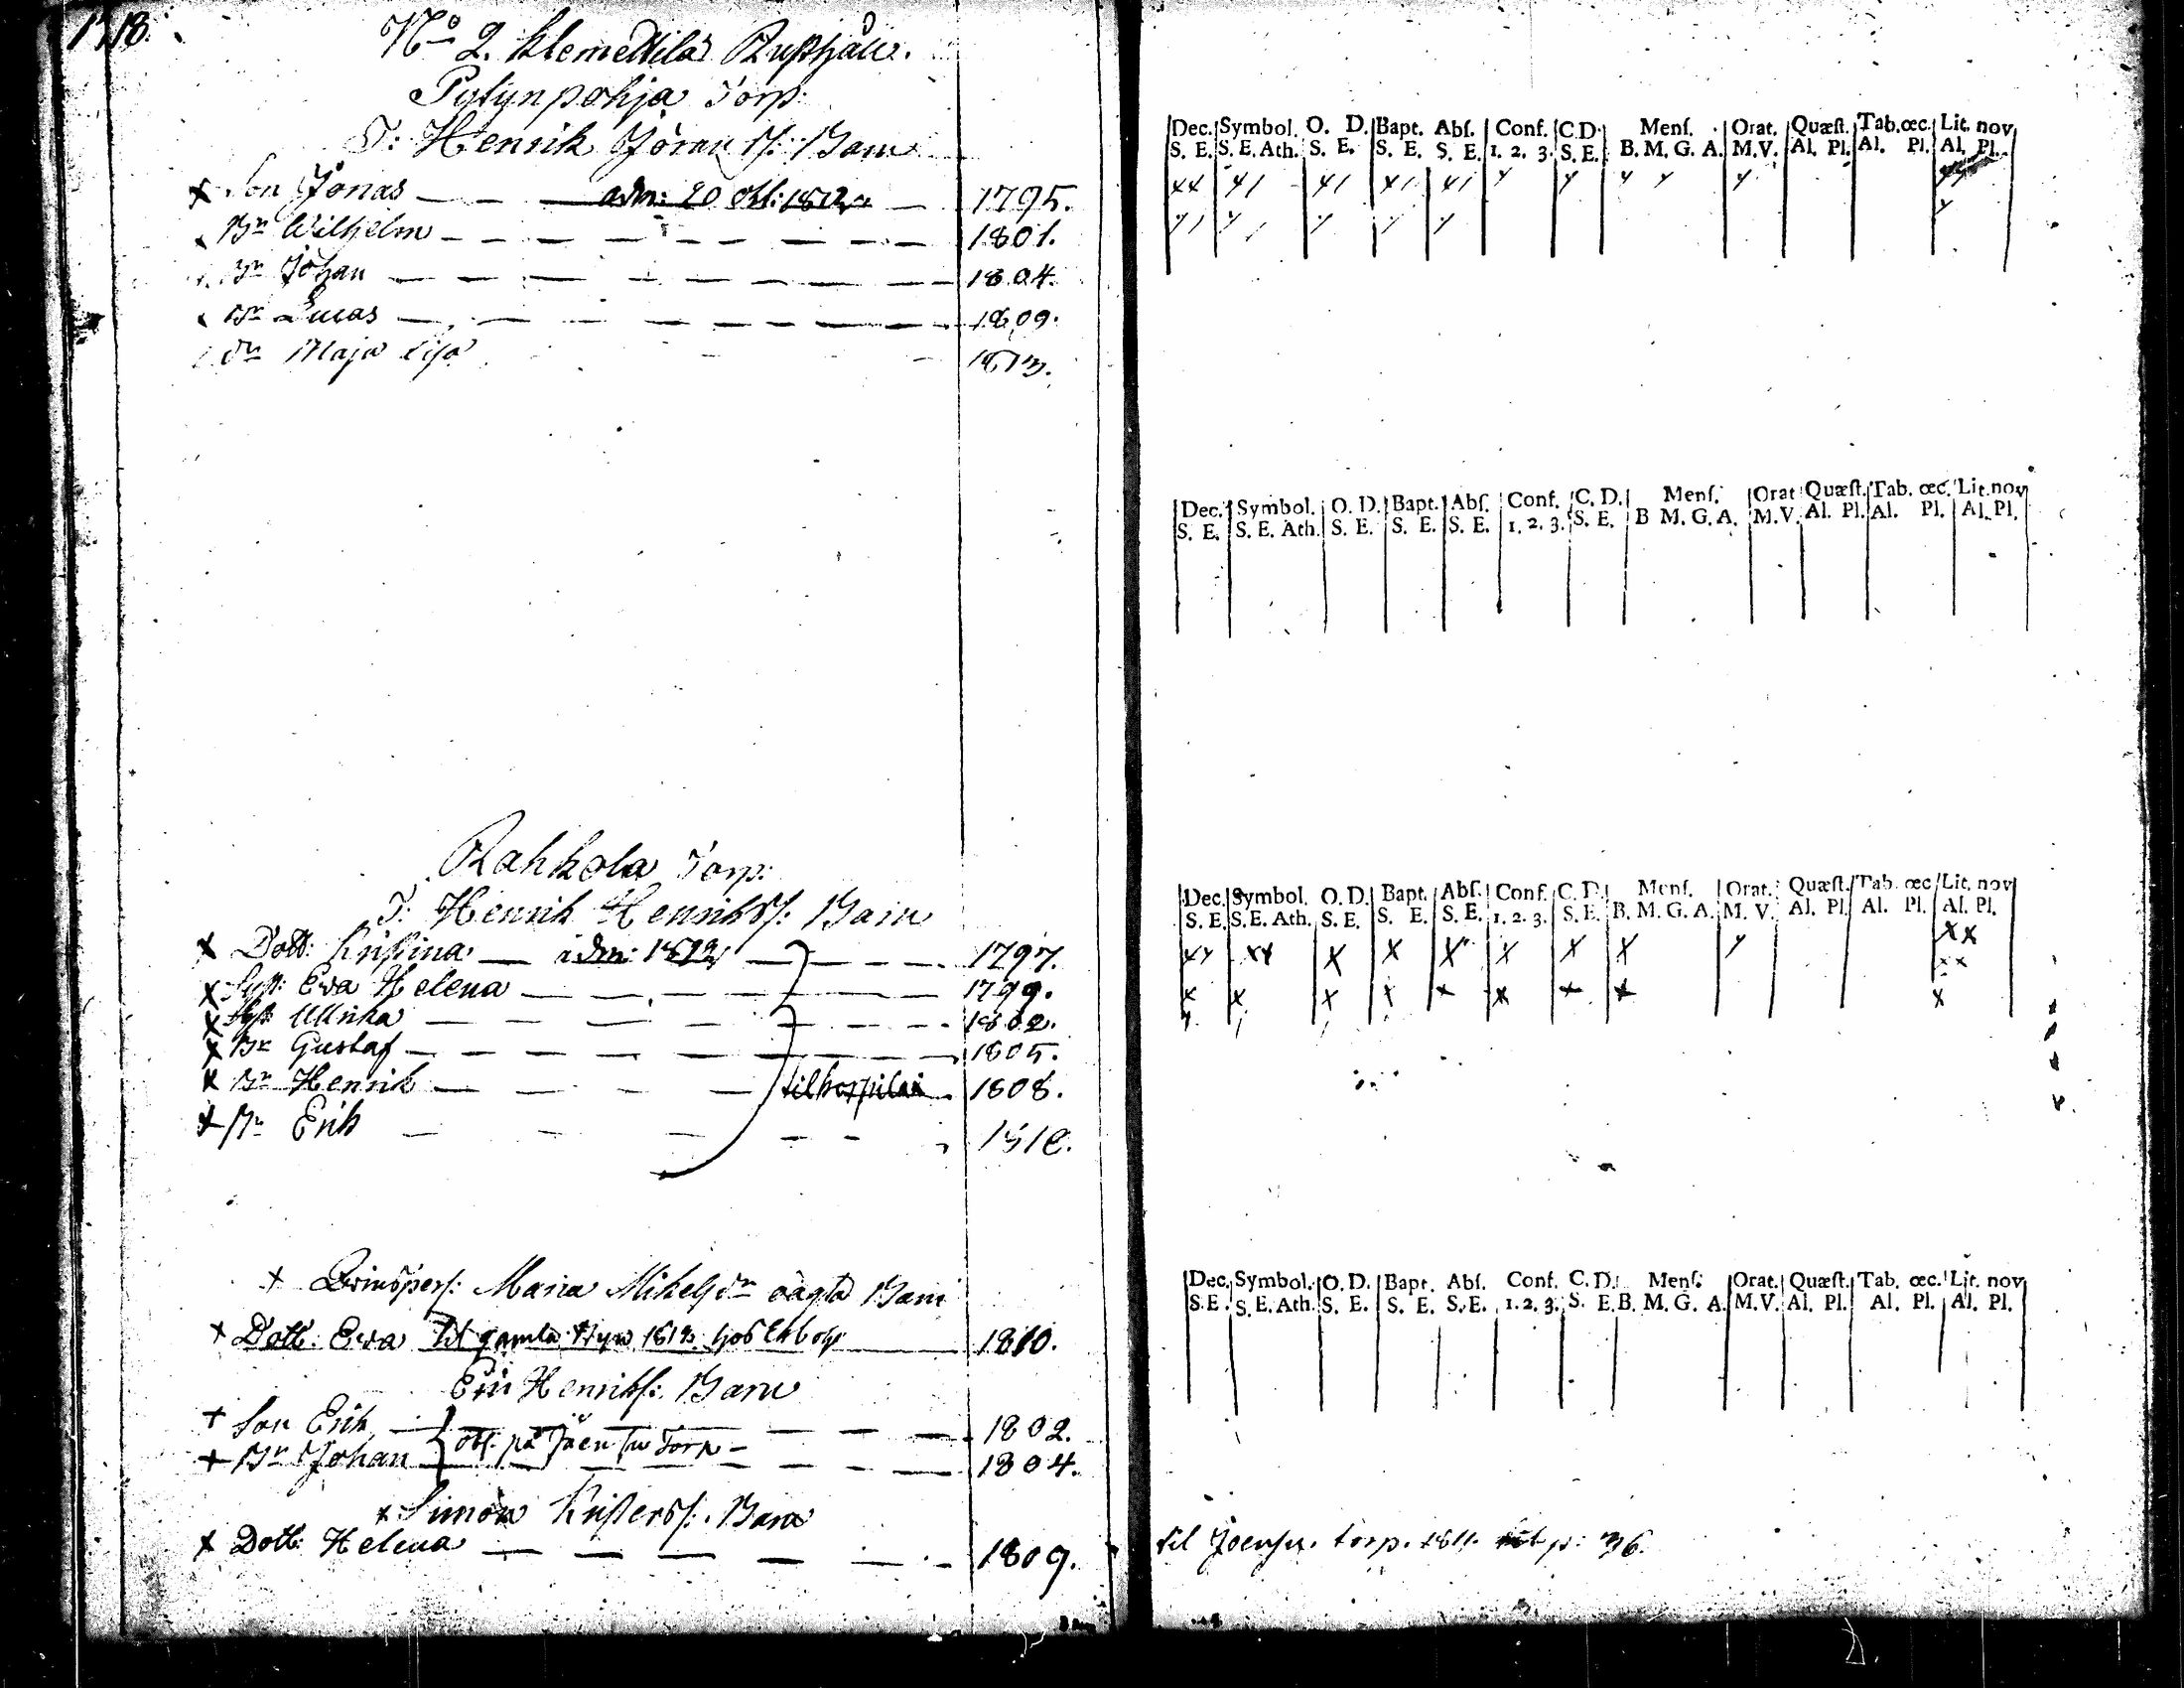 No 2. Klemettilä Rusthåll.
Pytynpohja Torp.
T: Henrik Jöran ss: Barn
x Son Jonas — adm: 20 Okt: 1812 — 1795.
Br Wilhelm — 1801.
Br Johan — 1804.
Br Lucas — 1809.
Sr Maja Lisa — 1813.
Dec. Symbol. O. D. Bapt. Abs. Conf. C.D. Menſ. Orat. Quæſt. Tab. œc. Lit. nov
S. E. S. E. Ath. S. E. S. E. S. E. 1. 2. 3. S. E. B. M. G. A. M.V. Al. Pl. Al. Pl. Al. Pl.
Dec. Symbol. O. D. Bapt. Abſ. Conf. C. D. Menſ. Orat Quæſt. Tab. œc. Lit. nov
S. E. S. E. Ath. S. E. S. E. S. E. 1. 2. 3. S. E. B M. G. A. M.V. Al. Pl. Al. Pl. Al. Pl.
Rahkola Torp:
T: Henrik Henrikss: Barn
x Dott: Kristina — adm: 1812 — 1797.
x Syst: Eva Helena — 1799.
x Syst Ullrika — 1802.
x Br Gustaf — 1805.
x Br Henrik — 1808.
x Br Erik
Dec. Symbol. O. D. Bapt. Abſ. Conf. C. D. Menſ. Orat. Quæſt. Tab. œc Lit. nov
S. E. S. E. Ath. S. E. S. E. S. E. 1. 2. 3. S. E. B. M. G. A. M. V. Al. Pl. Al. Pl. Al. Pl.
+ Qvinspers: Maria Mikelsdr oägta Barn
+ Dott: Eva Til gamla 1813 hos — 1810.
Eric Henrikss: Barn
+ Son Erik — 1802.
+ Br Johan obs. på Joensu Torp — 1804.
x Simon Kristerss: Barn
x Dott: Helena — 1809.
Dec. Symbol. O. D. Bapt. Abſ. Conf. C. D. Menſ. Orat. Quæſt. Tab. œc. Lit. nov
S. E. S. E. Ath. S. E. S. E. S. E. 1. 2. 3. S. E. B. M. G. A. M.V. Al. Pl. Al. Pl. Al. Pl.
til Joensu. torp. 1811. p: 36.